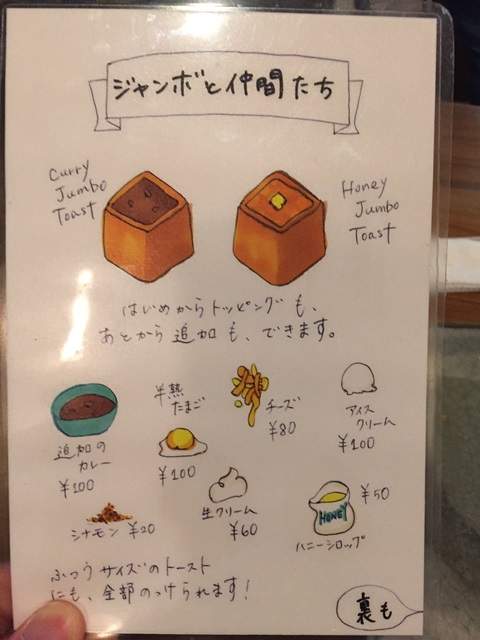 ジャンボと仲間たち
Curry
Jumbo
Toast
Honey
Jumbo
Toast
はじめからトッピングも、
あとから追加も、できます。
追加の
カレー
¥100
半熟
たまご
¥100
チーズ
¥80
アイス
クリーム
¥100
シナモン ¥20
生クリーム
¥60
HONEY
¥50
ハニーシロップ
ふつうサイズのトースト
にも、全部のっけられます!
裏も